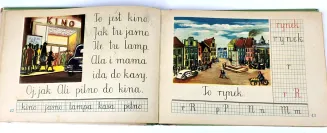 KINO
To jest kino.
Jak tu jasno
Ile tu lamp
Ala i mama
idą do kasy.
Oj, jak Ali pilno do kina.
kino jasno lampa kasa pilno
rynek
rynek
r
r
r
To rynek.
r R p P n N m M